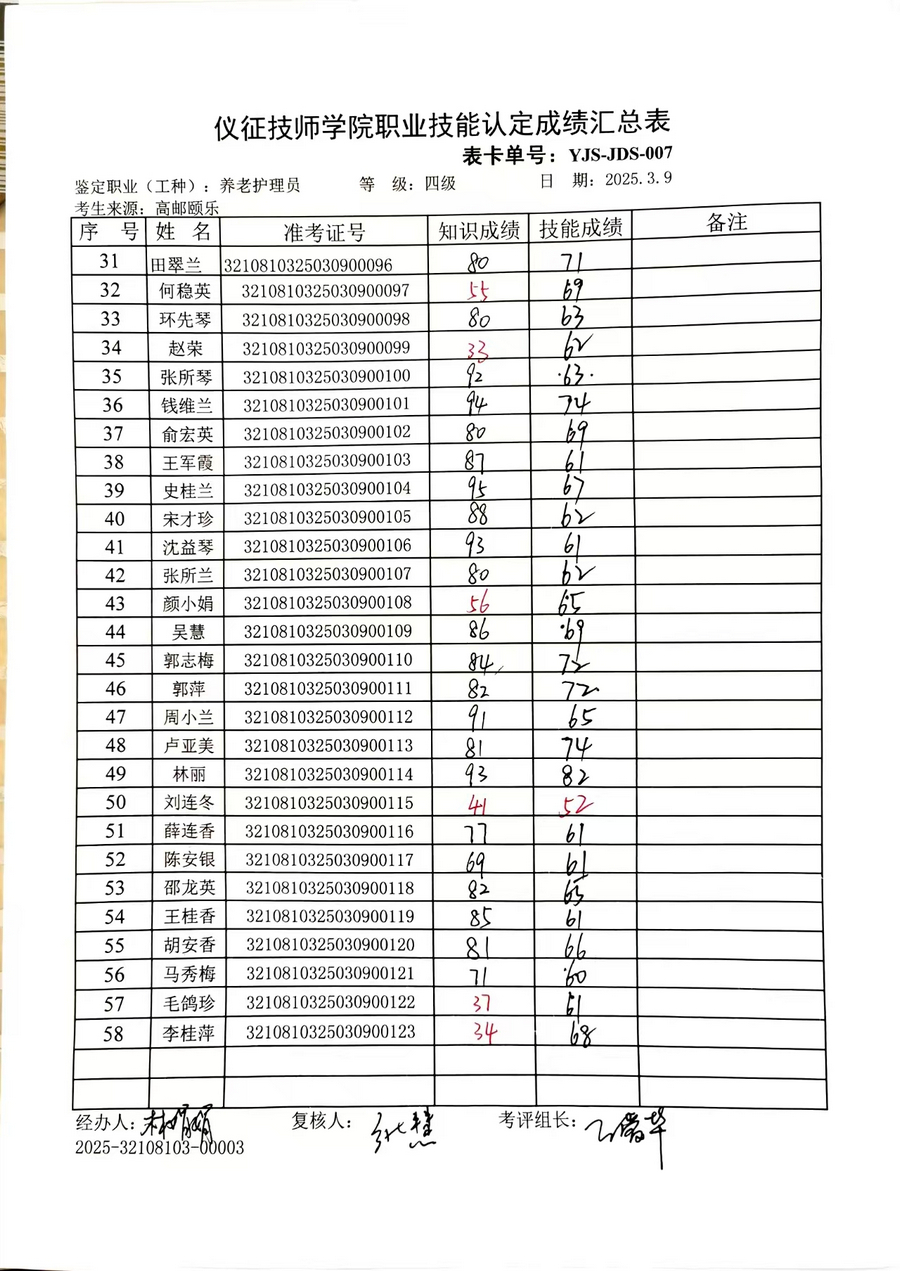 仪征技师学院职业技能认定成绩汇总表
表卡单号：YJS-JDS-007
鉴定职业（工种）：养老护理员 等 级：四级 日 期：2025.3.9
考生来源：高邮颐乐
序 号 姓 名 准考证号 知识成绩 技能成绩 备注
31 田翠兰 3210810325030900096 80 71
32 何稳英 3210810325030900097 55 69
33 环先琴 3210810325030900098 80 63
34 赵荣 3210810325030900099 33 62
35 张所琴 3210810325030900100 92 63
36 钱维兰 3210810325030900101 94 74
37 俞宏英 3210810325030900102 80 69
38 王军霞 3210810325030900103 87 61
39 史桂兰 3210810325030900104 95 67
40 宋才珍 3210810325030900105 88 62
41 沈益琴 3210810325030900106 93 61
42 张所兰 3210810325030900107 80 62
43 颜小娟 3210810325030900108 56 65
44 吴慧 3210810325030900109 86 69
45 郭志梅 3210810325030900110 84 72
46 郭萍 3210810325030900111 82 72
47 周小兰 3210810325030900112 91 65
48 卢亚美 3210810325030900113 81 74
49 林丽 3210810325030900114 93 82
50 刘连冬 3210810325030900115 41 52
51 薛连香 3210810325030900116 77 61
52 陈安银 3210810325030900117 69 61
53 邵龙英 3210810325030900118 82 65
54 王桂香 3210810325030900119 85 61
55 胡安香 3210810325030900120 81 66
56 马秀梅 3210810325030900121 71 60
57 毛鸽珍 3210810325030900122 37 61
58 李桂萍 3210810325030900123 34 68
经办人： 复核人： 考评组长：
2025-32108103-00003